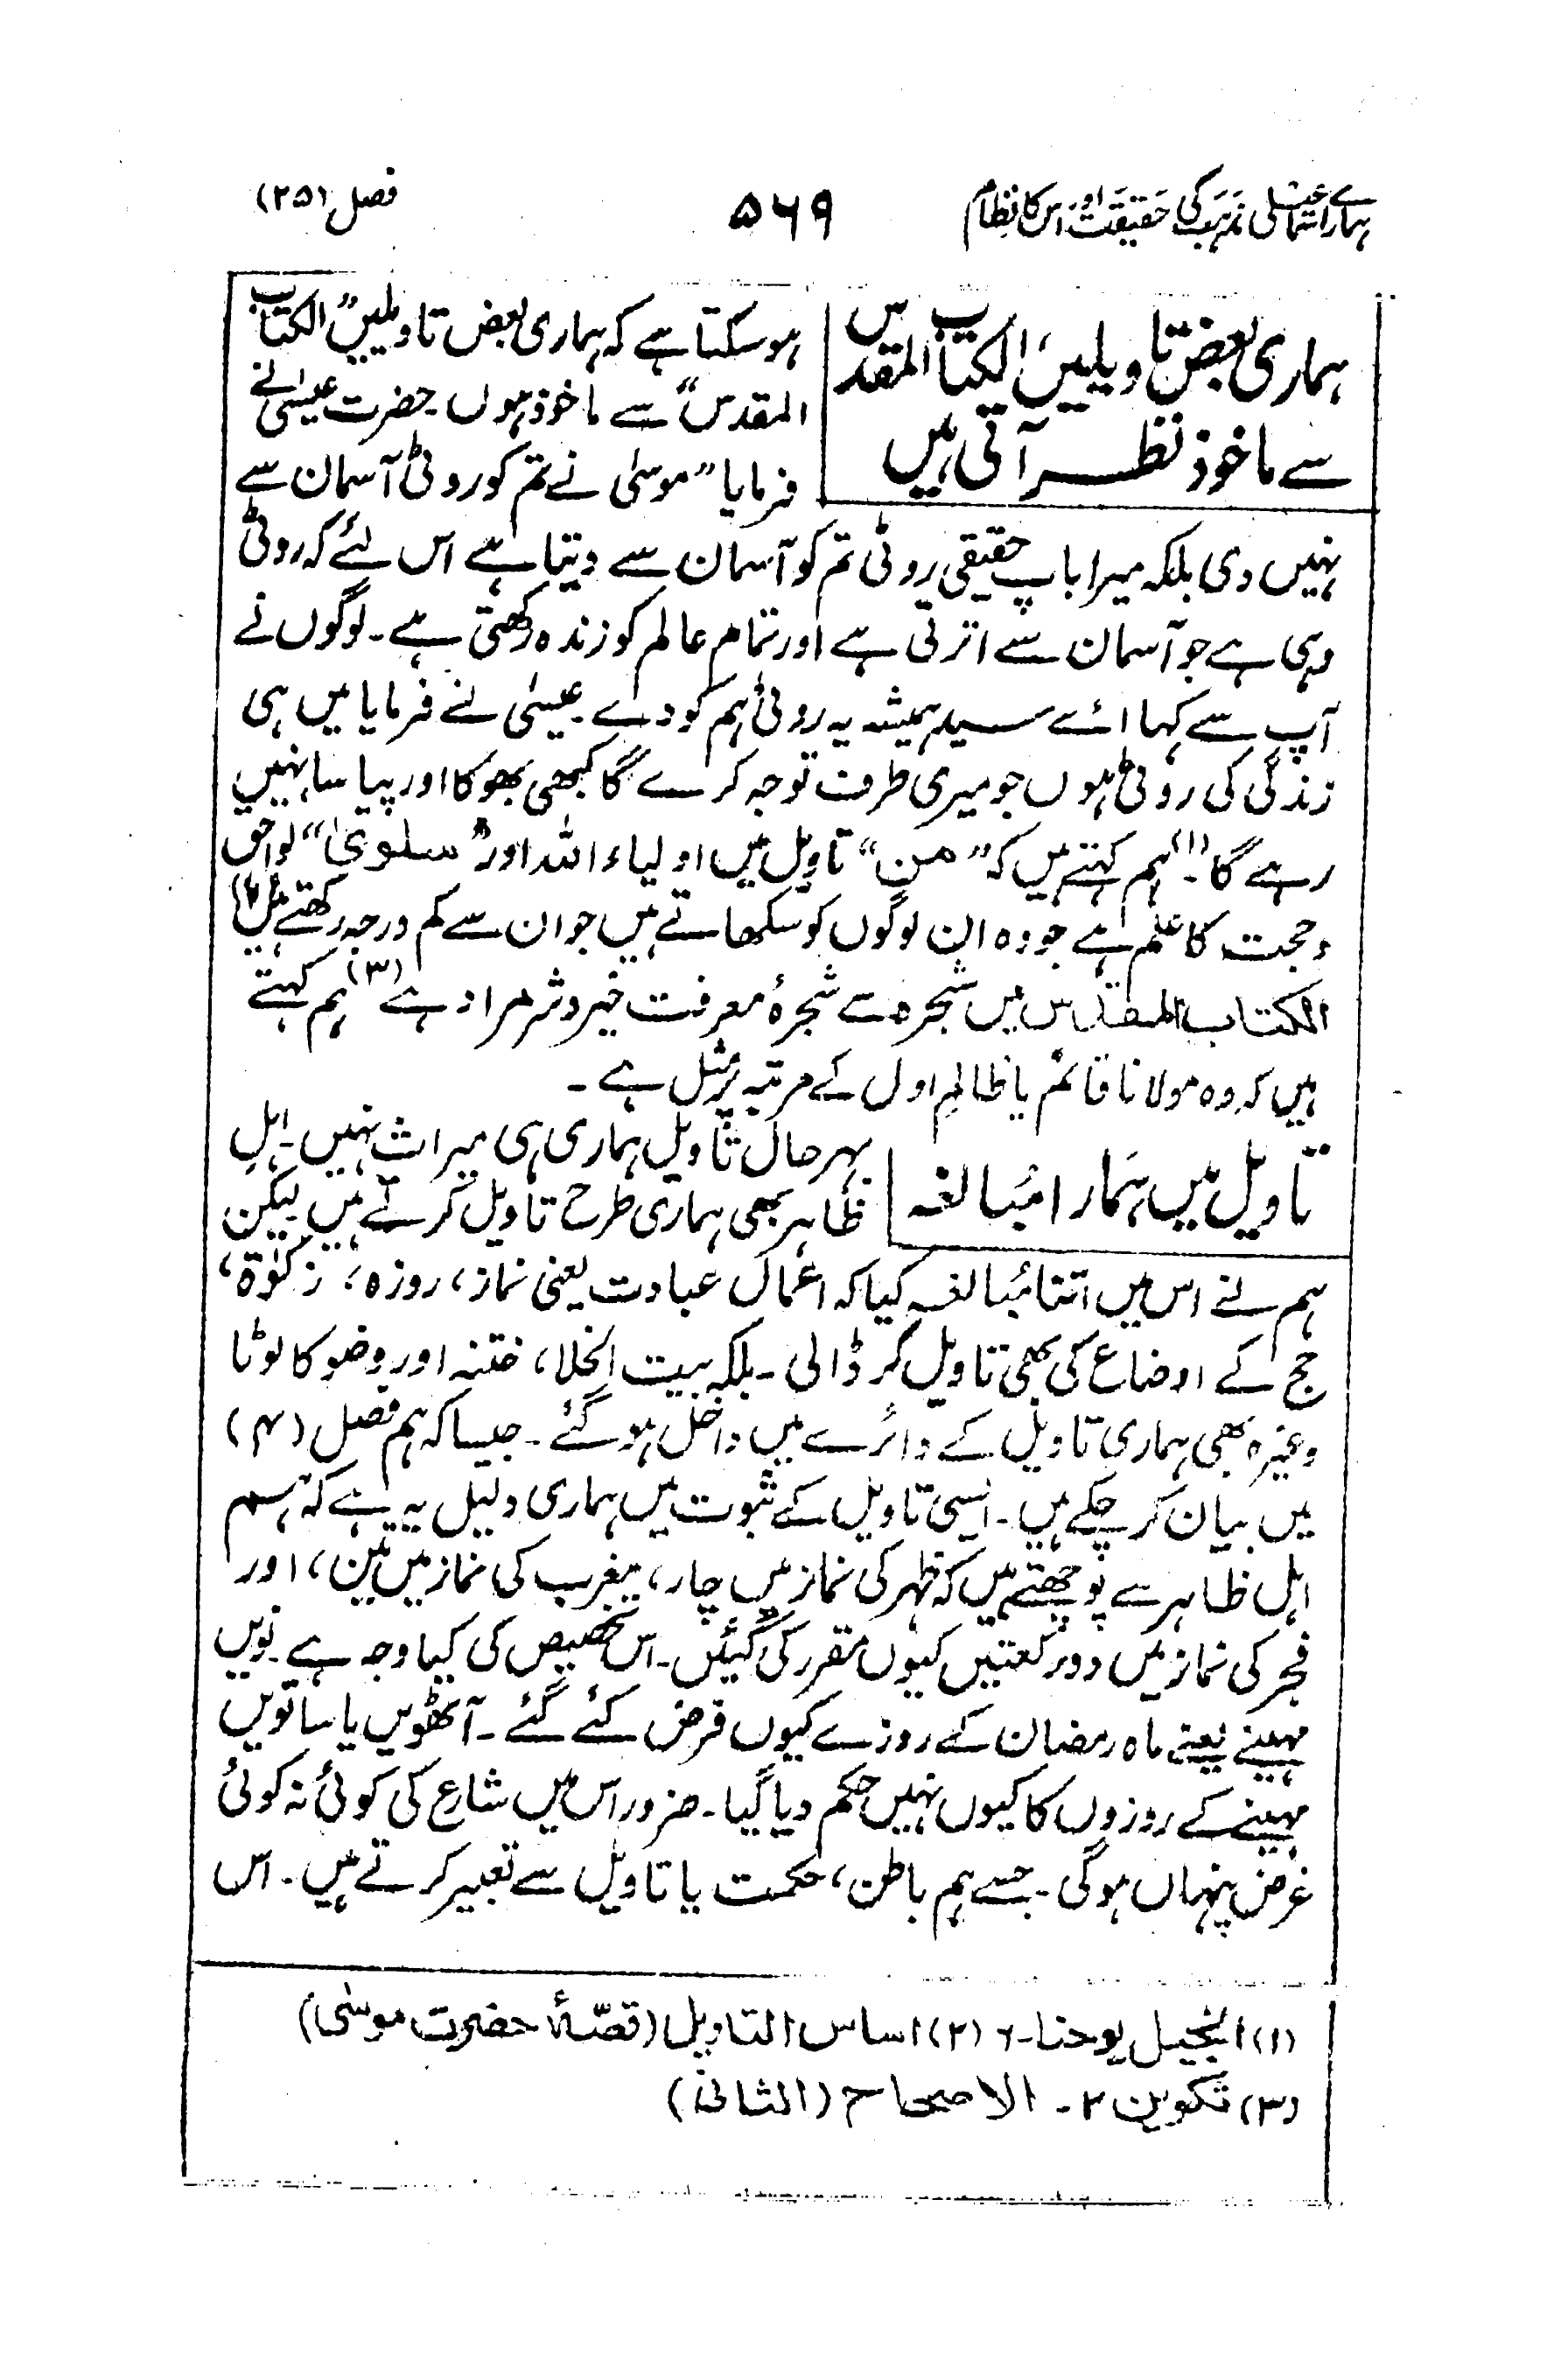 ہمارے اسماعیلی مذہب کی حقیقت اور اس کا نظام
۵۶۹
فصل (۲۵)
ہماری بعض تاویلیں الکتاب المقدس
سے ماخوذ نظر آتی ہیں
ہو سکتا ہے کہ ہماری بعض تاویلیں "الکتاب
المقدس" سے ماخوذ ہوں۔ حضرت عیسیٰ نے
فرمایا "موسیٰ نے تم کو روٹی آسمان سے
نہیں دی بلکہ میرا باپ حقیقی روٹی تم کو آسمان سے دیتا ہے اس لئے کہ روٹی
وہی ہے جو آسمان سے اترتی ہے اور تمام عالم کو زندہ رکھتی ہے۔ لوگوں نے
آپ سے کہا اے سید ہمیشہ یہ روٹی ہم کو دے۔ عیسیٰ نے فرمایا میں ہی
زندگی کی روٹی ہوں جو میری طرف توجہ کرے گا کبھی بھوکا اور پیاسا نہیں
رہے گا۔(۱) ہم کہتے ہیں کہ "من" تاویل میں اولیاء اللہ اور "سلویٰ" لواحق
و حجت کا علم ہے جو وہ ان لوگوں کو سکھاتے ہیں جو ان سے کم درجہ رکھتے ہیں(۲)
الکتاب المقدس میں شجرہ سے شجرۂ معرفت خیر و شر مراد ہے(۳) ہم کہتے
ہیں کہ وہ مولانا قائم یا ظالمِ اول کے مرتبہ پر مثل ہے۔
تاویل میں ہمارا مبالغہ
بہر حال تاویل ہماری ہی میراث نہیں۔ اہلِ
ظاہر بھی ہماری طرح تاویل کرتے ہیں لیکن
ہم نے اس میں اتنا مبالغہ کیا کہ اعمال عبادت یعنی نماز، روزہ، زکوٰۃ،
حج کے اوضاع کی بھی تاویل کر ڈالی۔ بلکہ بیت الخلا، ختنہ اور وضو کا لوٹا
وغیرہ بھی ہماری تاویل کے دائرے میں داخل ہو گئے۔ جیسا کہ ہم فصل (۴)
میں بیان کر چکے ہیں۔ ایسی تاویل کے ثبوت میں ہماری دلیل یہ ہے کہ ہم
اہل ظاہر سے پوچھتے ہیں کہ ظہر کی نماز میں چار، مغرب کی نماز میں تین، اور
فجر کی نماز میں دو رکعتیں کیوں مقرر کی گئیں۔ اس تخصیص کی کیا وجہ ہے۔ نویں
مہینے یعنے ماہ رمضان کے روزے کیوں فرض کئے گئے۔ آٹھویں یا ساتویں
مہینے کے روزوں کا کیوں نہیں حکم دیا گیا۔ ضرور اس میں شارع کی کوئی نہ کوئی
غرض پنہاں ہوگی۔ جسے ہم باطن، حکمت یا تاویل سے تعبیر کرتے ہیں۔ اس
(۱) انجیل یوحنا۔ ۶ (۲) اساس التاویل (قصّۂ حضرت موسیٰ)
(۳) تکوین ۲۔ الاصحاح (الثانی)